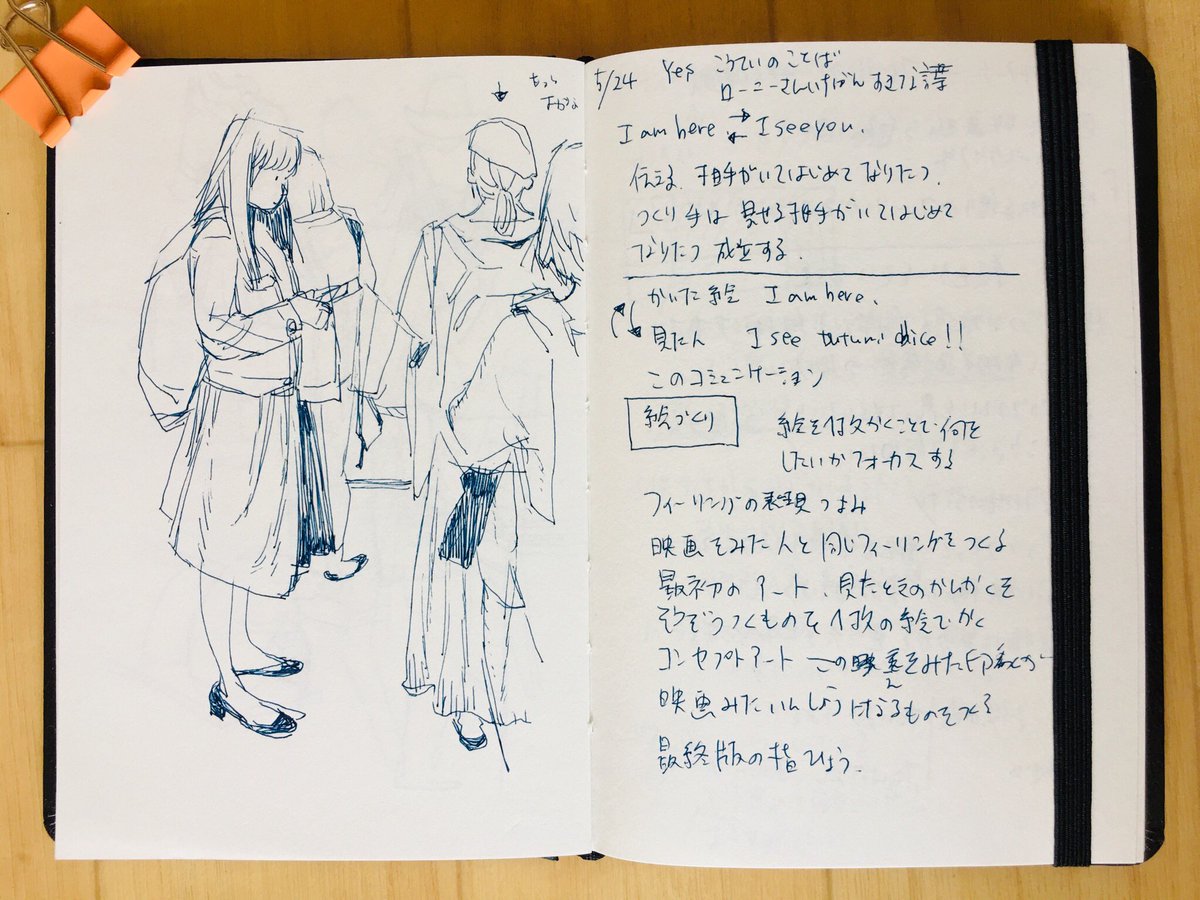 もっと
5/24 Yes こうていのことば
ローニーさんいちばんすきな
I am here ⇄ I see you.
伝える、相手がいてはじめてなりたつ.
つくり手は見せる相手がいてはじめて
なりたつ 成立する.
かいた絵 I am here.
見た人 I see tutumi daice!!
このコミュニケーション
絵づくり
絵を1枚かくことで何を
したいかフォーカスする
フィーリングの表現 つよみ
映画をみた人と同じフィーリングをつくる
最初のアート、見たときのかんかくを
そうぞうつくものを1枚の絵でかく
コンセプトアート この映画をみた印象が
映画みたいんしょう ものをつくる
最終版の指ひょう.